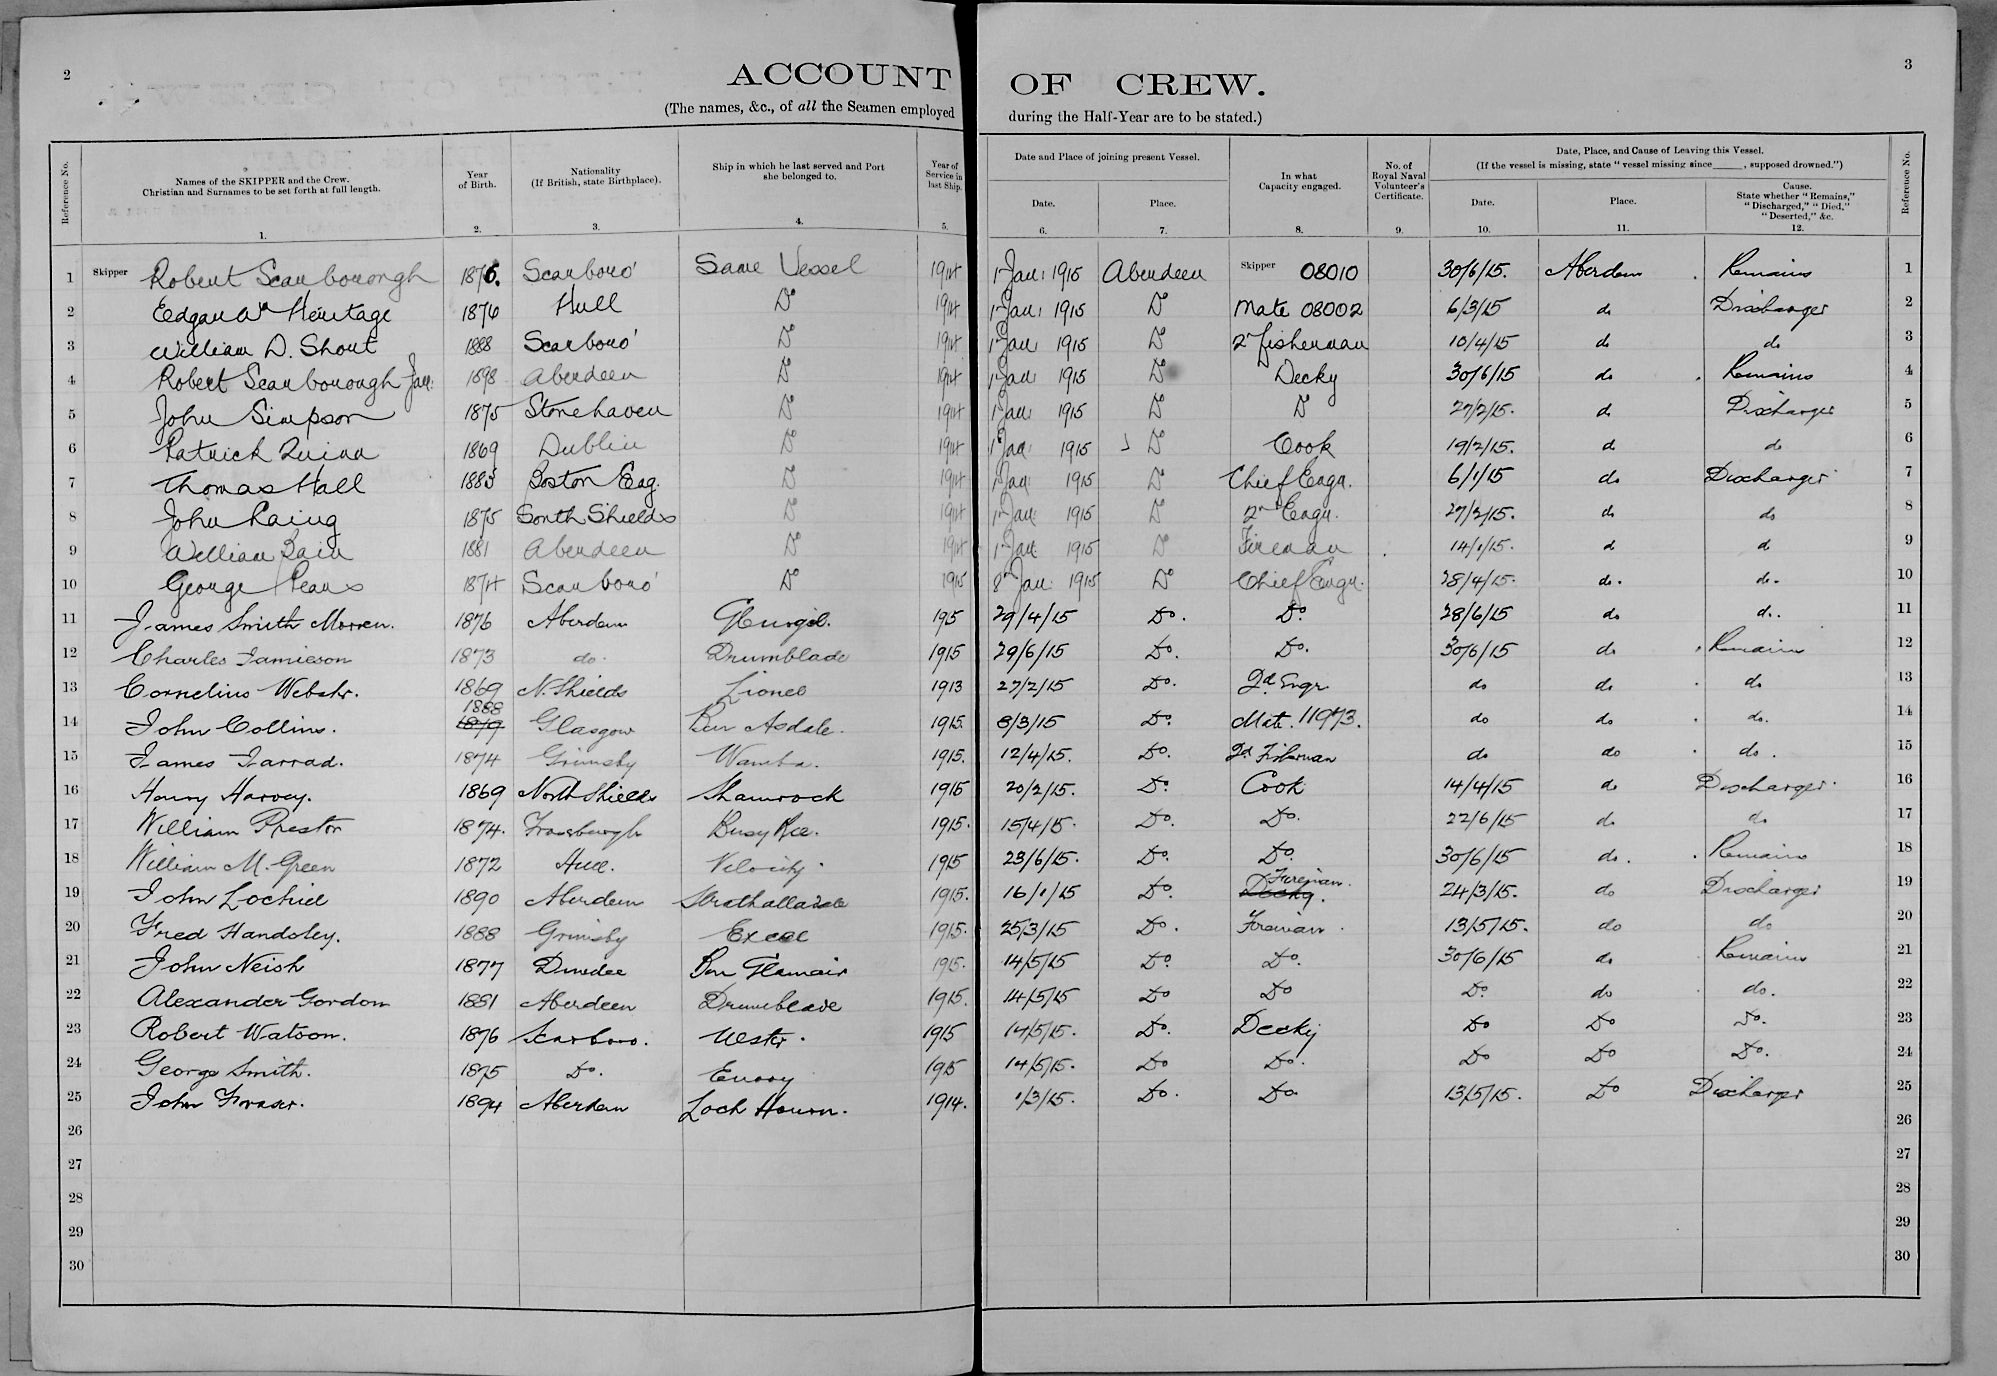 2
ACCOUNT OF CREW.
3
(The names, &c., of all the Seamen employed during the Half-Year are to be stated.)
Reference No.
Names of the SKIPPER and the Crew. Christian and Surnames to be set forth at full length.
1.
Year of Birth.
2.
Nationality (If British, state Birthplace).
3.
Ship in which he last served and Port she belonged to.
4.
Year of Service in last Ship.
5.
Date and Place of joining present Vessel.
Date.
6.
Place.
7.
In what Capacity engaged.
8.
No. of Royal Naval Volunteer's Certificate.
9.
Date, Place, and Cause of Leaving this Vessel.
(If the vessel is missing, state "vessel missing since ____, supposed drowned.")
Date.
10.
Place.
11.
Cause. State whether "Remains," "Discharged," "Died," "Deserted," &c.
12.
Reference No.
1 Skipper Robert Scarborough 1876. Scarboro' Same Vessel 1914 1 Jan: 1915 Aberdeen Skipper 08010 30/6/15. Aberdeen Remains 1
2 Edgar Wm Heritage 1874 Hull Do 1914 1 Jan: 1915 Do Mate 08002 6/3/15 do Discharged 2
3 William D. Shout 1888 Scarboro' Do 1914 1 Jan: 1915 Do 2nd fisherman 10/4/15 do do 3
4 Robert Scarborough Jan: 1898 Aberdeen Do 1914 1 Jan: 1915 Do Decky 30/6/15 do Remains 4
5 John Simpson 1875 Stonehaven Do 1914 1 Jan: 1915 Do Do 27/2/15. do Discharged 5
6 Patrick Quinn 1869 Dublin Do 1914 1 Jan: 1915 Do Cook 19/2/15. do do 6
7 Thomas Hall 1885 Boston Eng. Do 1914 1 Jan: 1915 Do Chief Engr. 6/1/15 do Discharged 7
8 John Laing 1875 South Shields Do 1914 1 Jan: 1915 Do 2nd Engr. 27/2/15. do do 8
9 William Bain 1881 Aberdeen Do 1914 1 Jan: 1915 Do Fireman 14/1/15. do do 9
10 George 1874 Scarboro' Do 1915 8 Jan: 1915 Do Chief Engr. 28/4/15. do. do. 10
11 James Smith Morren. 1876 Aberdeen Glengil. 1915 29/4/15 Do. Do. 28/6/15 do do. 11
12 Charles Jamieson 1873 do. Drumblade 1915 29/6/15 Do. Do. 30/6/15 do Remains 12
13 Cornelius Webstr. 1869 N. Shields Lionel 1913 27/2/15 Do. 2d Engr do do do 13
14 John Collins. 1888 1879 Glasgow Ben Asdale. 1915. 8/3/15 Do. Mate. 11973. do do do. 14
15 James Jarrad. 1874 Grimsby Wamba. 1915. 12/4/15. Do. 2d Fisherman do do do. 15
16 Henry Harvey. 1869 North Shields Shamrock 1915 20/2/15. Do. Cook 14/4/15 do Discharged. 16
17 William Preston 1874. Fraserburgh Busy Bee. 1915. 15/4/15. Do. Do. 22/6/15 do do 17
18 William M. Green 1872 Hull. Velocity. 1915 23/6/15. Do. Do. 30/6/15 do. Remains 18
19 John Lochiel 1890 Aberdeen Strathalladale 1915. 16/1/15 Do. Fireman. Decky. 24/3/15. do Discharged 19
20 Fred Handsley. 1888 Grimsby Excel 1915. 25/3/15 Do. Fireman. 13/5/15. do do 20
21 John Neish 1877 Dundee Ben Glamair 1915. 14/5/15 Do. Do. 30/6/15 do Remains 21
22 Alexander Gordon 1881 Aberdeen Drumblade 1915. 14/5/15 Do Do Do. do do. 22
23 Robert Watson. 1876 Scarboro. Ulster. 1915 14/5/15. Do. Decky Do Do Do. 23
24 George Smith. 1875 Do. Envoy 1915 14/5/15. Do Do. Do Do Do. 24
25 John Fraser. 1894 Aberdeen Loch Hourn. 1914. 1/3/15. Do. Do. 13/5/15. Do Discharged 25
26 26
27 27
28 28
29 29
30 30